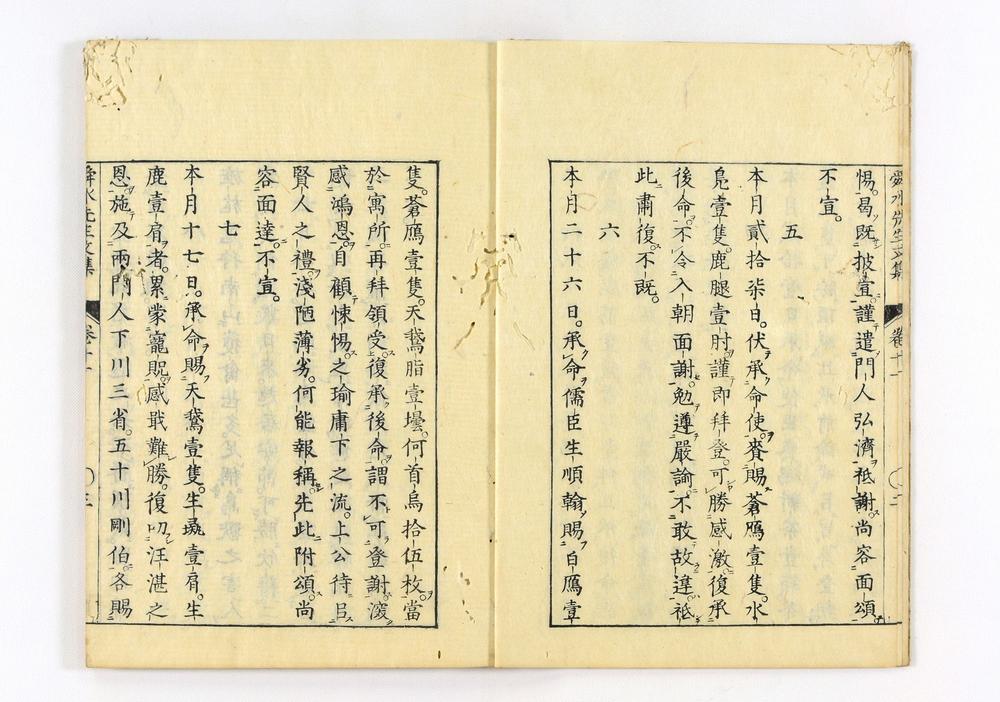 舜水先生文集 卷十一 〇二
惕。曷既披宣。謹遣門人弘濟祗謝。尚容面頌。
不宣。
五
本月貳拾柒日。伏承命使。賚賜蒼鴈壹隻。水
鳧壹隻。鹿腿壹肘。謹即拜登。可勝感激。復承
後命。不令入朝面謝。勉遵嚴諭。不敢故違。祗
此肅復。不既。
六
本月二十六日。承命儒臣生順翰賜白鴈壹
隻。蒼鴈壹隻。天鵞脂壹壜。何首烏拾伍枚。當
於寓所。再拜領受。復承後命。謂不可登謝。深
感鴻恩。自顧悚惕。之瑜庸下之流。上公待㠯
賢人之禮。淺陋薄劣。何能報稱。先此附頌。尚
容面達。不宣。
七
本月十七日。承命賜天鵞壹隻。生彘壹肩。生
鹿壹肩者。累蒙寵貺。感戢難勝。復叨汪湛之
恩。施及兩門人下川三省。五十川剛伯。各賜
舜水先生文集 卷十一 〇三